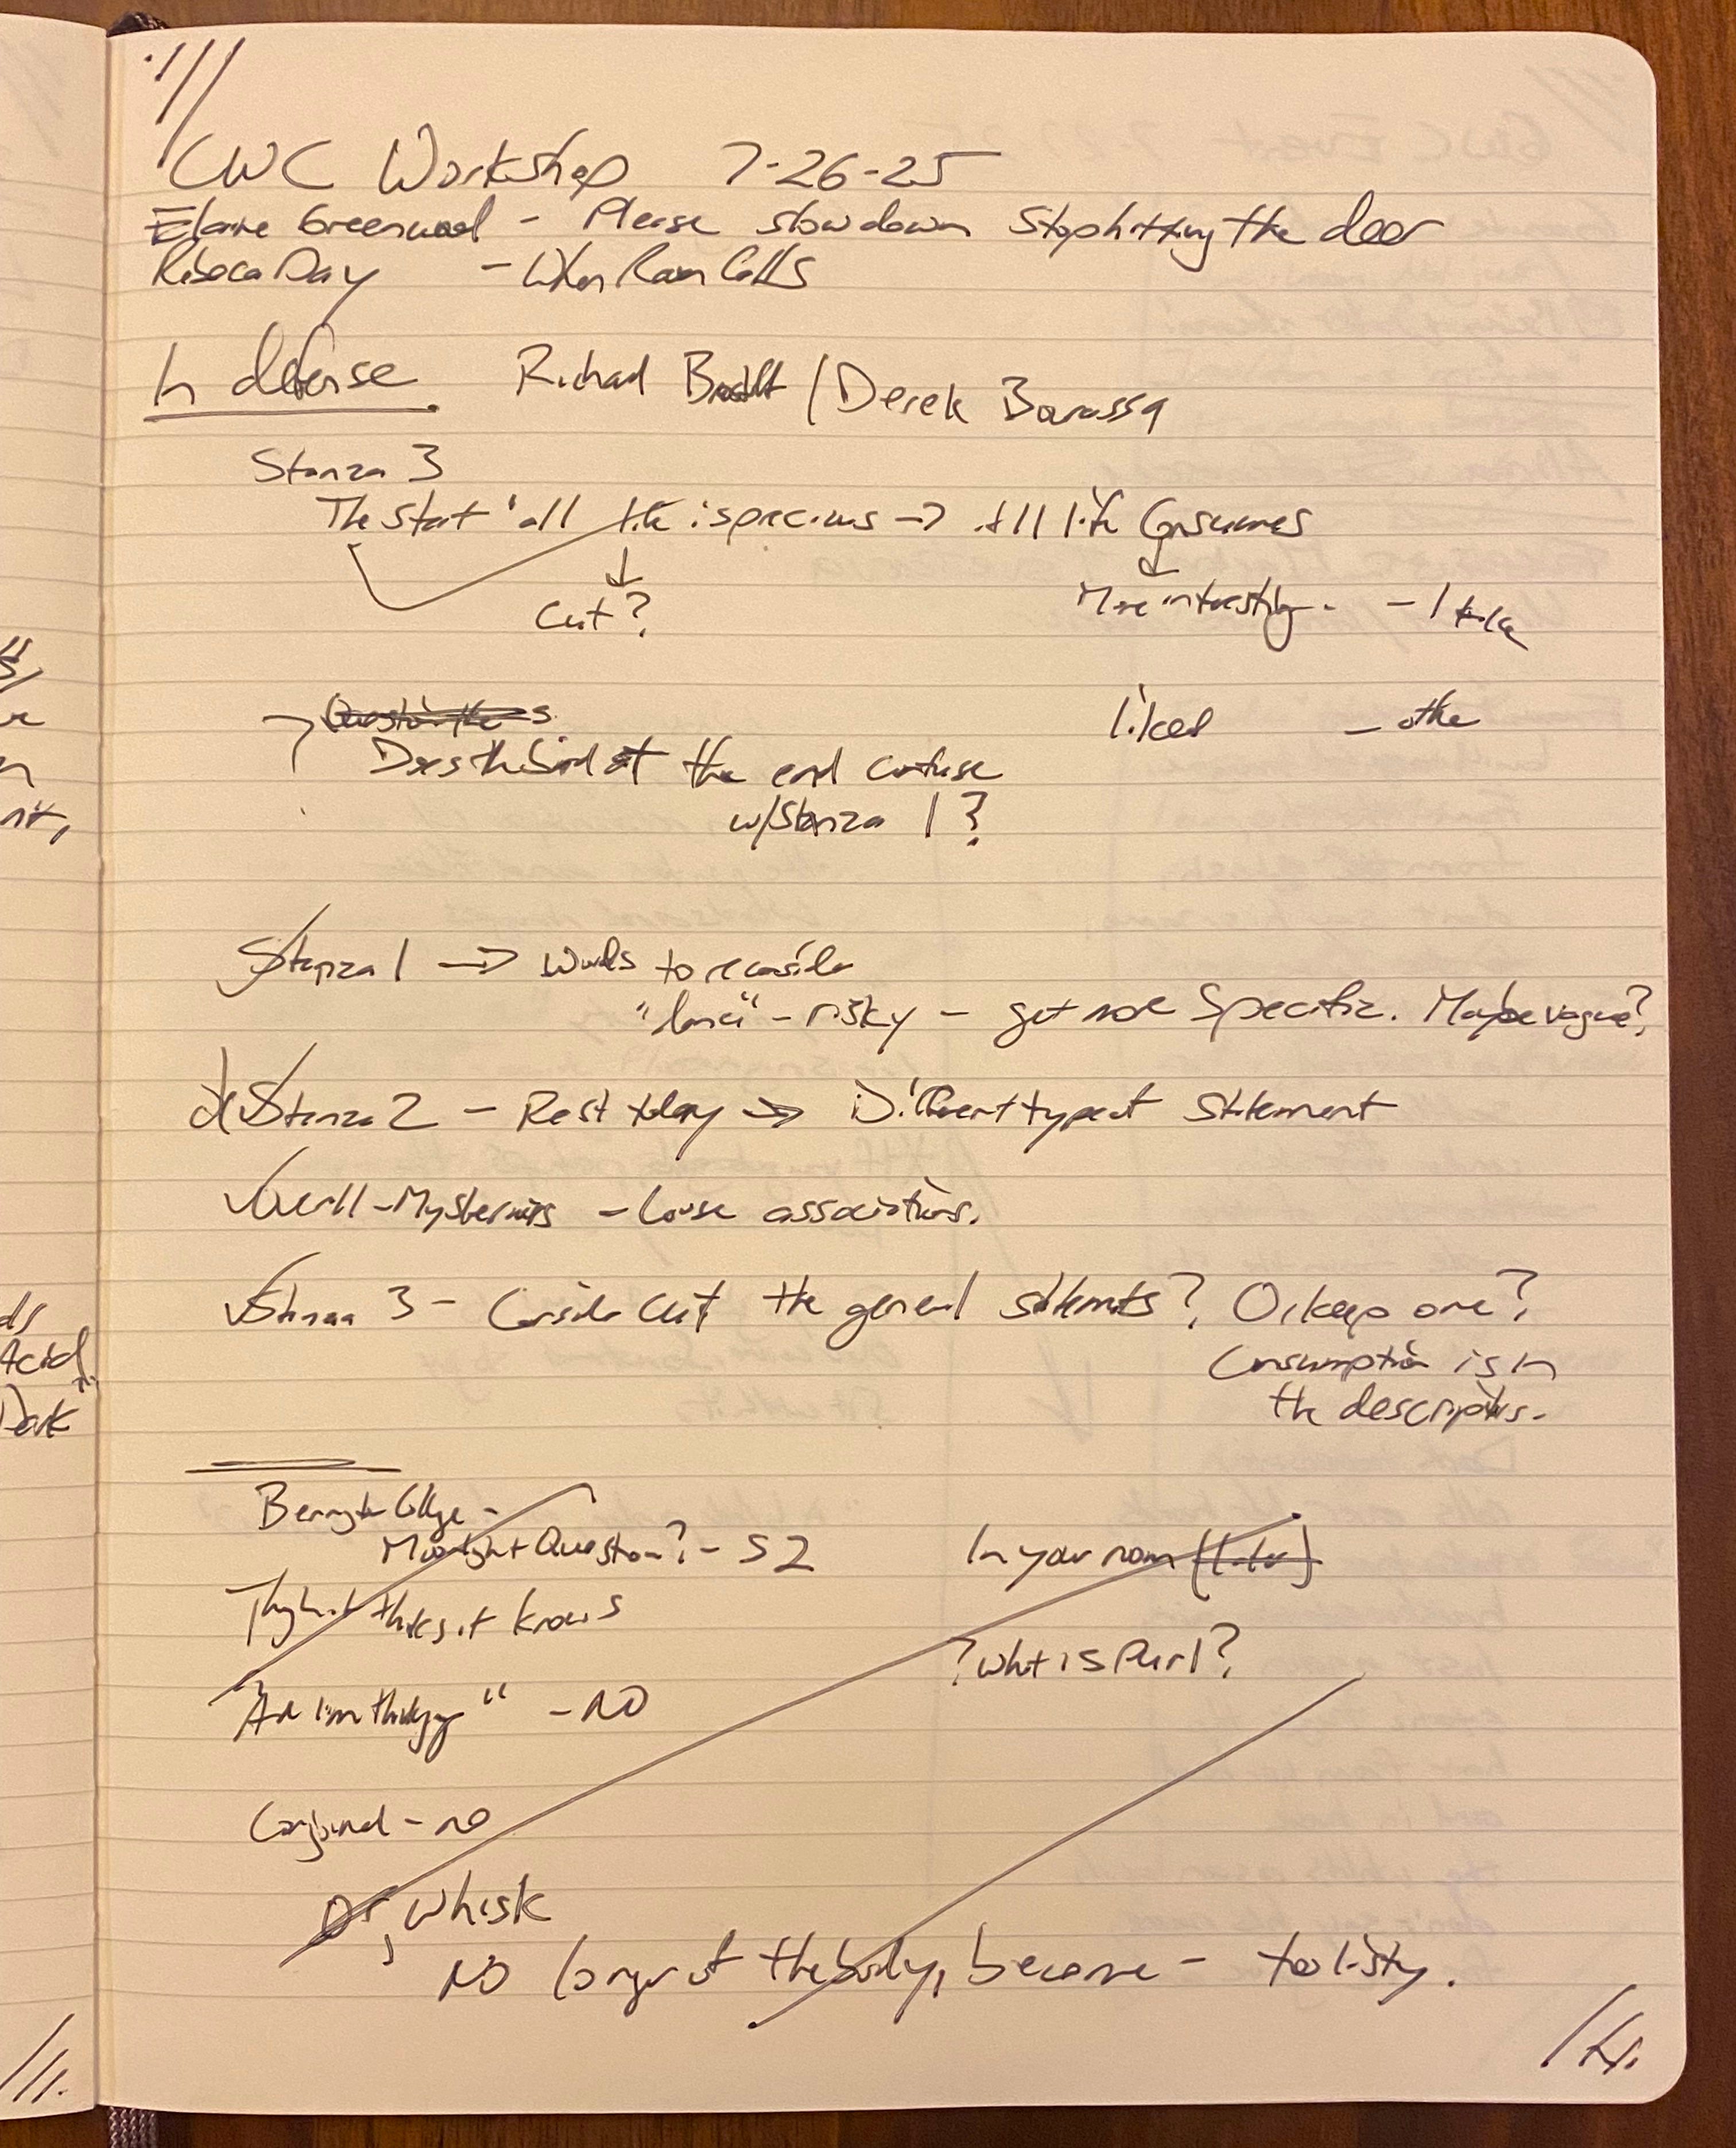 CWC Workshop 7-26-25
Elaine Greenwood - Please slow down Stop hitting the deer
Rebeca Day - When Rain Calls
In defense Richard / Derek Barossa
Stanza 3
The start 'all life is precious -> all life Consumes
Cut? More interesting. - I take
Questions
liked - other
Does the bird at the end confuse
w/Stanza 1?
Stanza 1 -> Words to reconsider
" " - risky - get more Specific. Maybe vague?
Stanza 2 - Rest today -> Different type of statement
Overall - Mysterious - Loose associations.
Stanza 3 - Consider cut the general statements? Or keep one?
Consumption is in
the descriptions.
College -
Moonlight Question? - S2 In your room
thinks it knows
? what is Purl?
I'm thinking" - NO
Conjured - no
Or, whisk
No longer of the body, become - too listy.